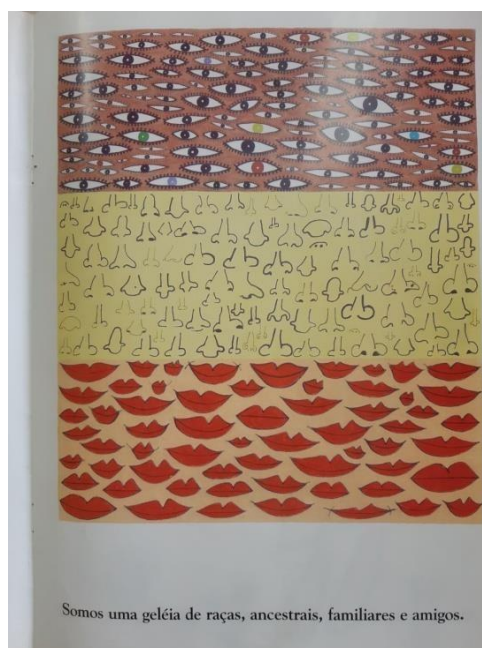 Somos uma geléia de raças, ancestrais, familiares e amigos.